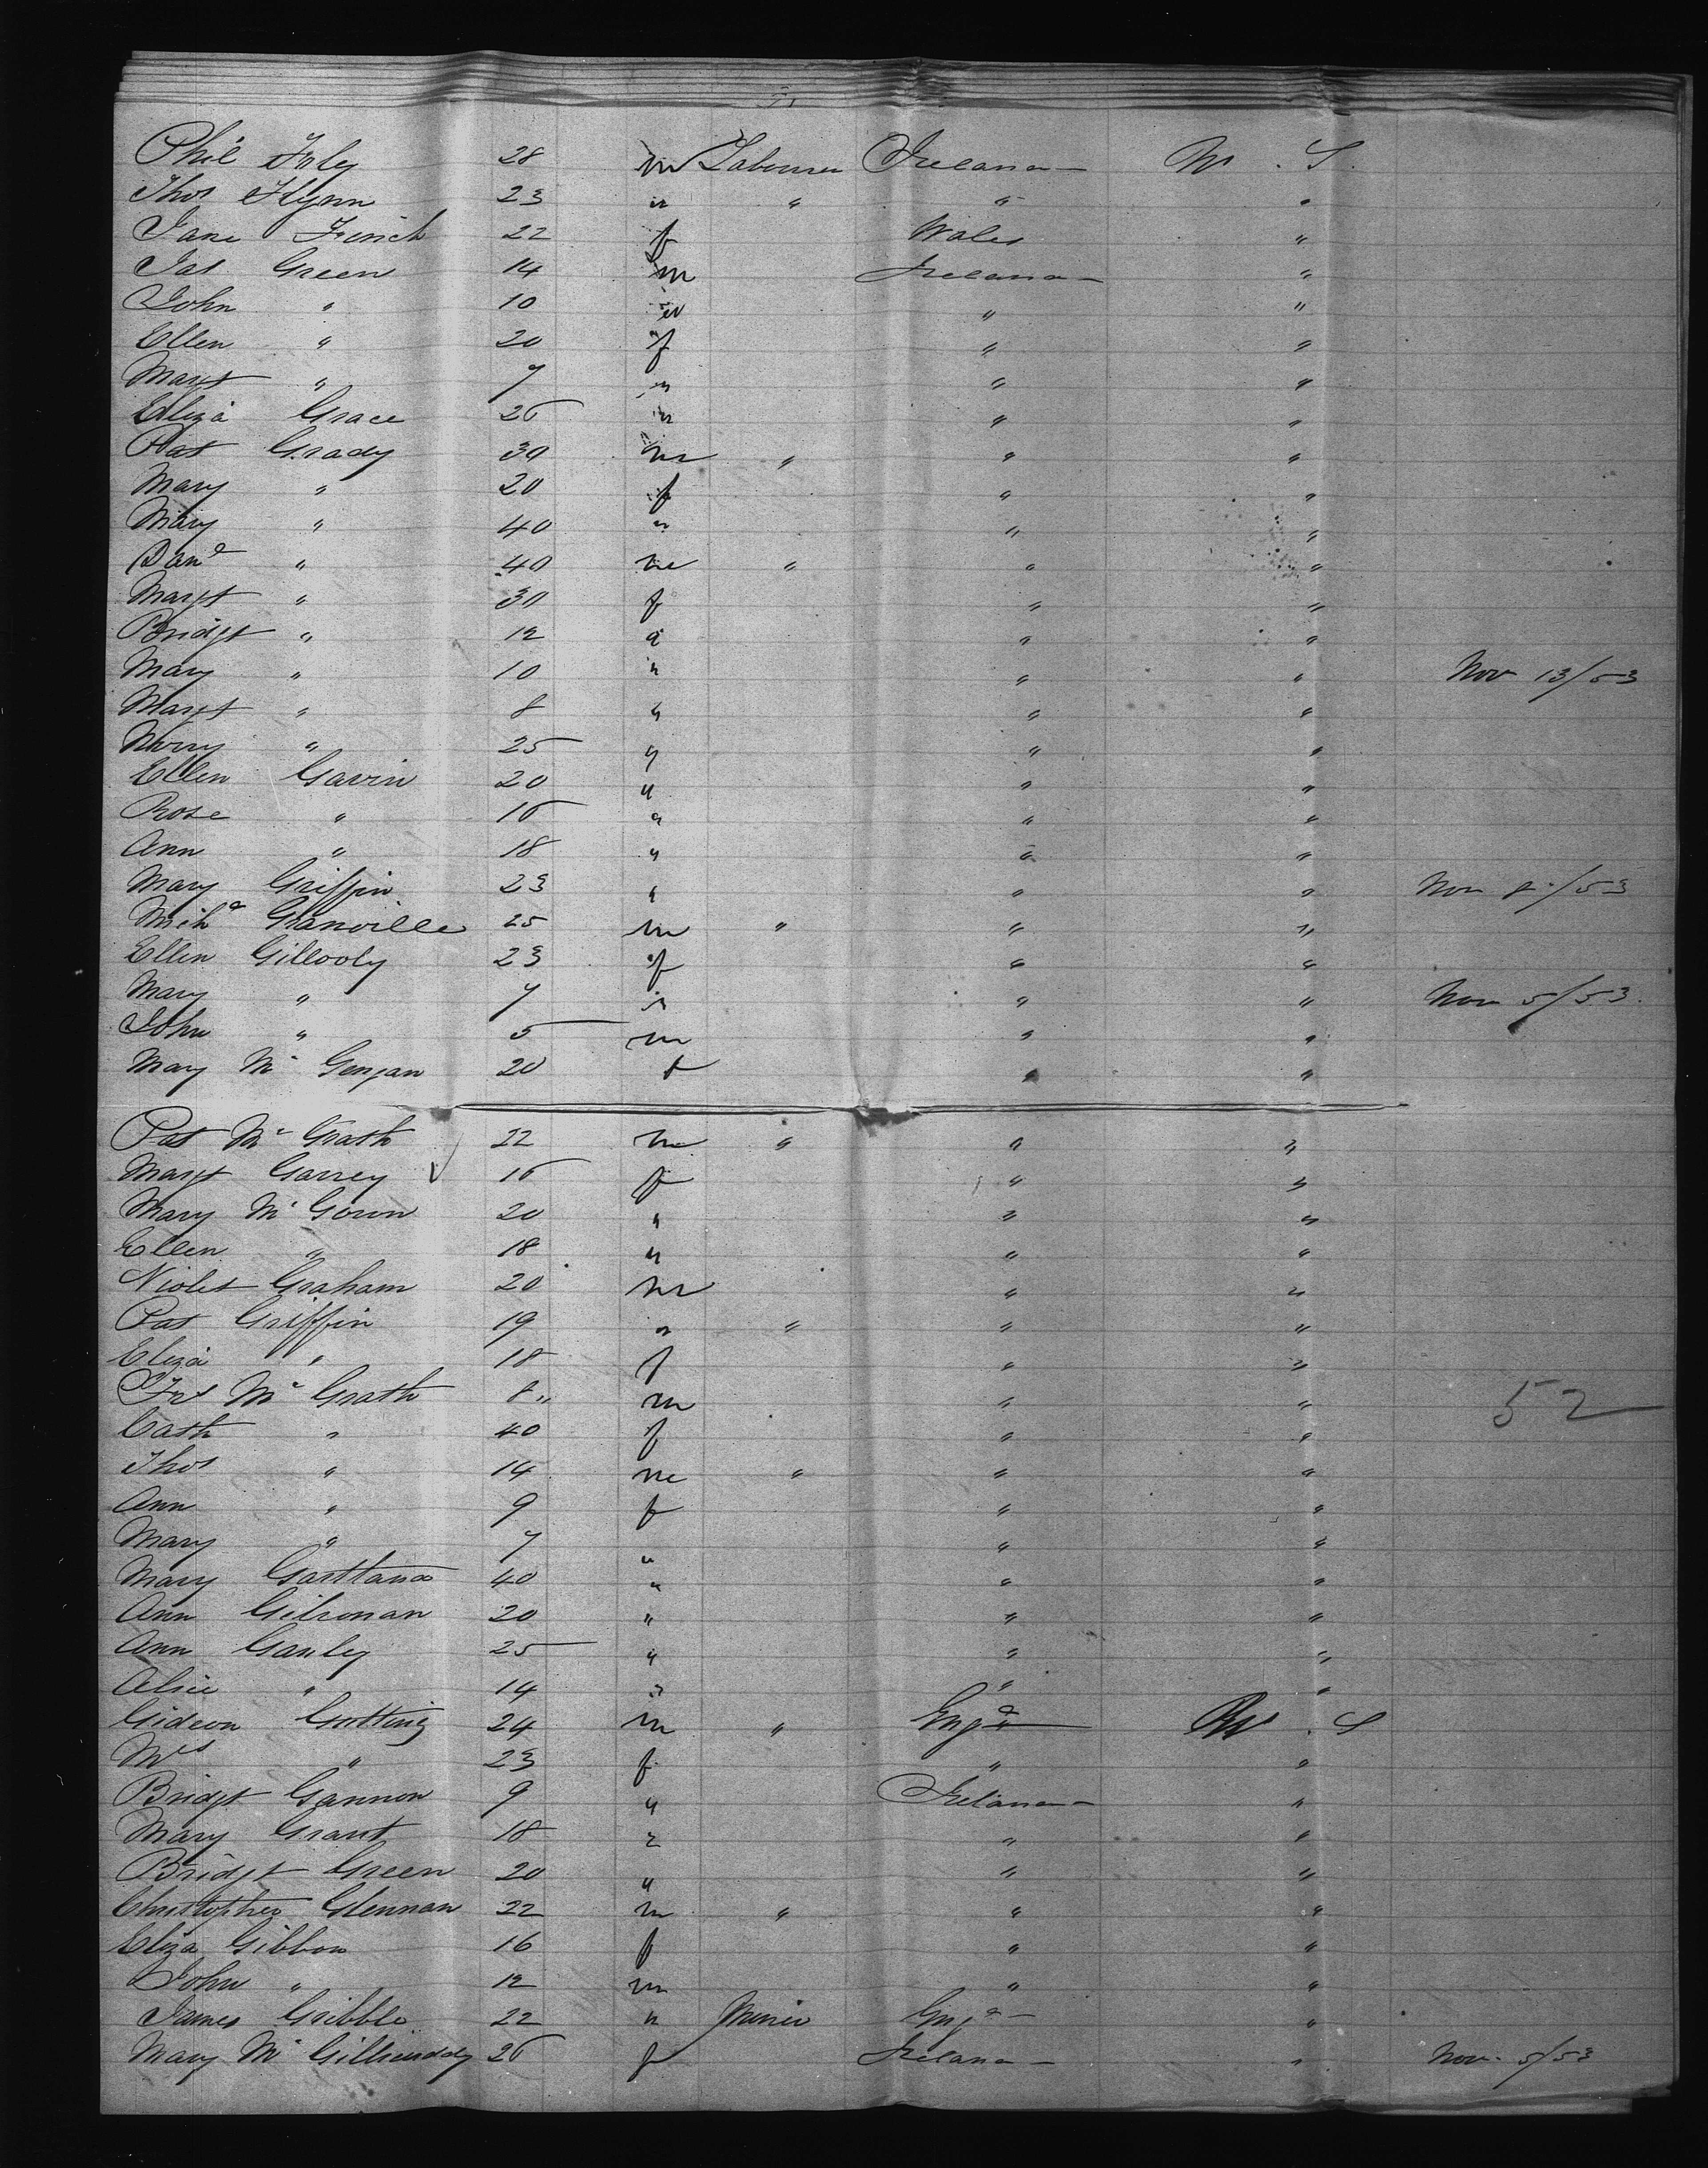 Phil Foley 28 m Labourer Ireland U. S.
Thos Flynn 23 " " " "
Jane Finch 22 f Wales "
Jas Green 14 m Ireland "
John " 10 " " "
Ellen " 20 f " "
Margt " 7 " " "
Eliza Grace 26 " " "
Pat Grady 30 m " " "
Mary " 20 f " "
Mary " 40 " " "
Danl " 40 m " " "
Margt " 30 f " "
Bridgt " 12 " " "
Mary " 10 " " " Nov 13/53
Margt " 8 " " "
" 25 " " "
Ellen Gavin 20 " " "
Rose " 16 " " "
Ann " 18 " " "
Mary Griffin 23 " " " Nov 8/53
Michl Granville 25 m " " "
Ellen Gillooly 23 f " "
Mary " 7 " " " Nov 5/53
John " 5 m " "
Mary Mc 20 f " "
Pat Mc Grath 22 m " " "
Margt Garrey 16 f " "
Mary Mc Gowen 20 " " "
Ellen " 18 " " "
Violet Graham 20 m " "
Pat Griffin 19 " " " "
Eliza " 18 f " "
Mc Grath 8 " m " "
Cath " 40 f " "
Thos " 14 m " " "
Ann " 9 f " " 52
Mary " 7 " " "
Mary Gartland 40 " " "
Ann Gilronan 20 " " "
Ann Ganley 25 " " "
Alice " 14 " " "
Gideon 24 m " Engd U. S
Mrs " 23 f " "
Bridgt Gannon 9 " Ireland "
Mary Grant 18 " " "
Bridgt Green 20 " " "
Christopher Glennan 22 m " " "
Eliza Gibbon 16 f " "
John " 12 m " "
James Gribble 22 " Miner Engd "
Mary Mc 26 f Ireland " Nov. 5/53